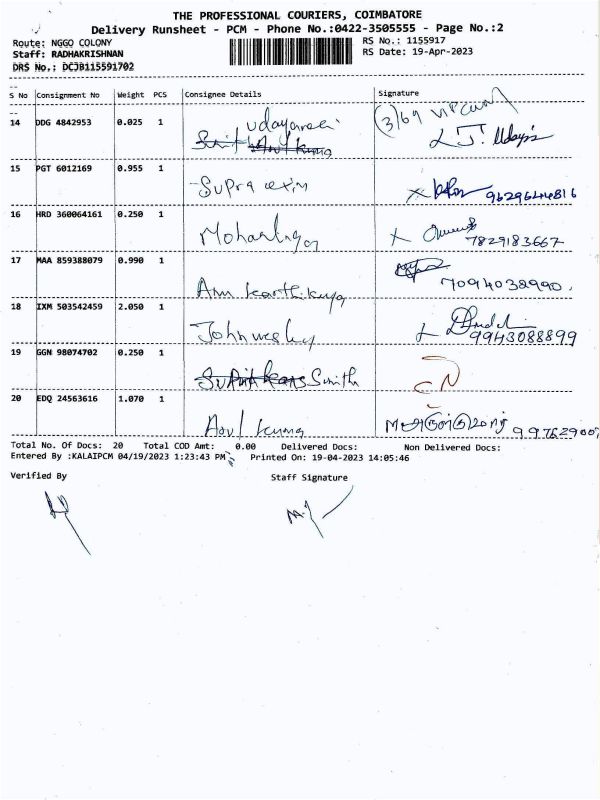 THE PROFESSIONAL COURIERS, COIMBATORE
Delivery Runsheet - PCM - Phone No.:0422-3505555 - Page No.:2
Route: NGGO COLONY
RS No.: 1155917
Staff: RADHAKRISHNAN
RS Date: 19-Apr-2023
DRS No.: DCJB115591702
S No Consignment No Weight PCS Consignee Details Signature
14 DDG 4842953 0.025 1
15 PGT 6012169 0.955 1 Supra exim 9629644816
16 HRD 360064161 0.250 1 7829183667
17 MAA 859388079 0.990 1 7094038990
18 IXM 503542459 2.050 1 John wesly 9943088899
19 GGN 98074702 0.250 1 Sunitha
20 EDQ 24563616 1.070 1
Total No. Of Docs: 20 Total COD Amt: 0.00 Delivered Docs: Non Delivered Docs:
Entered By :KALAIPCM 04/19/2023 1:23:43 PM Printed On: 19-04-2023 14:05:46
Verified By Staff Signature